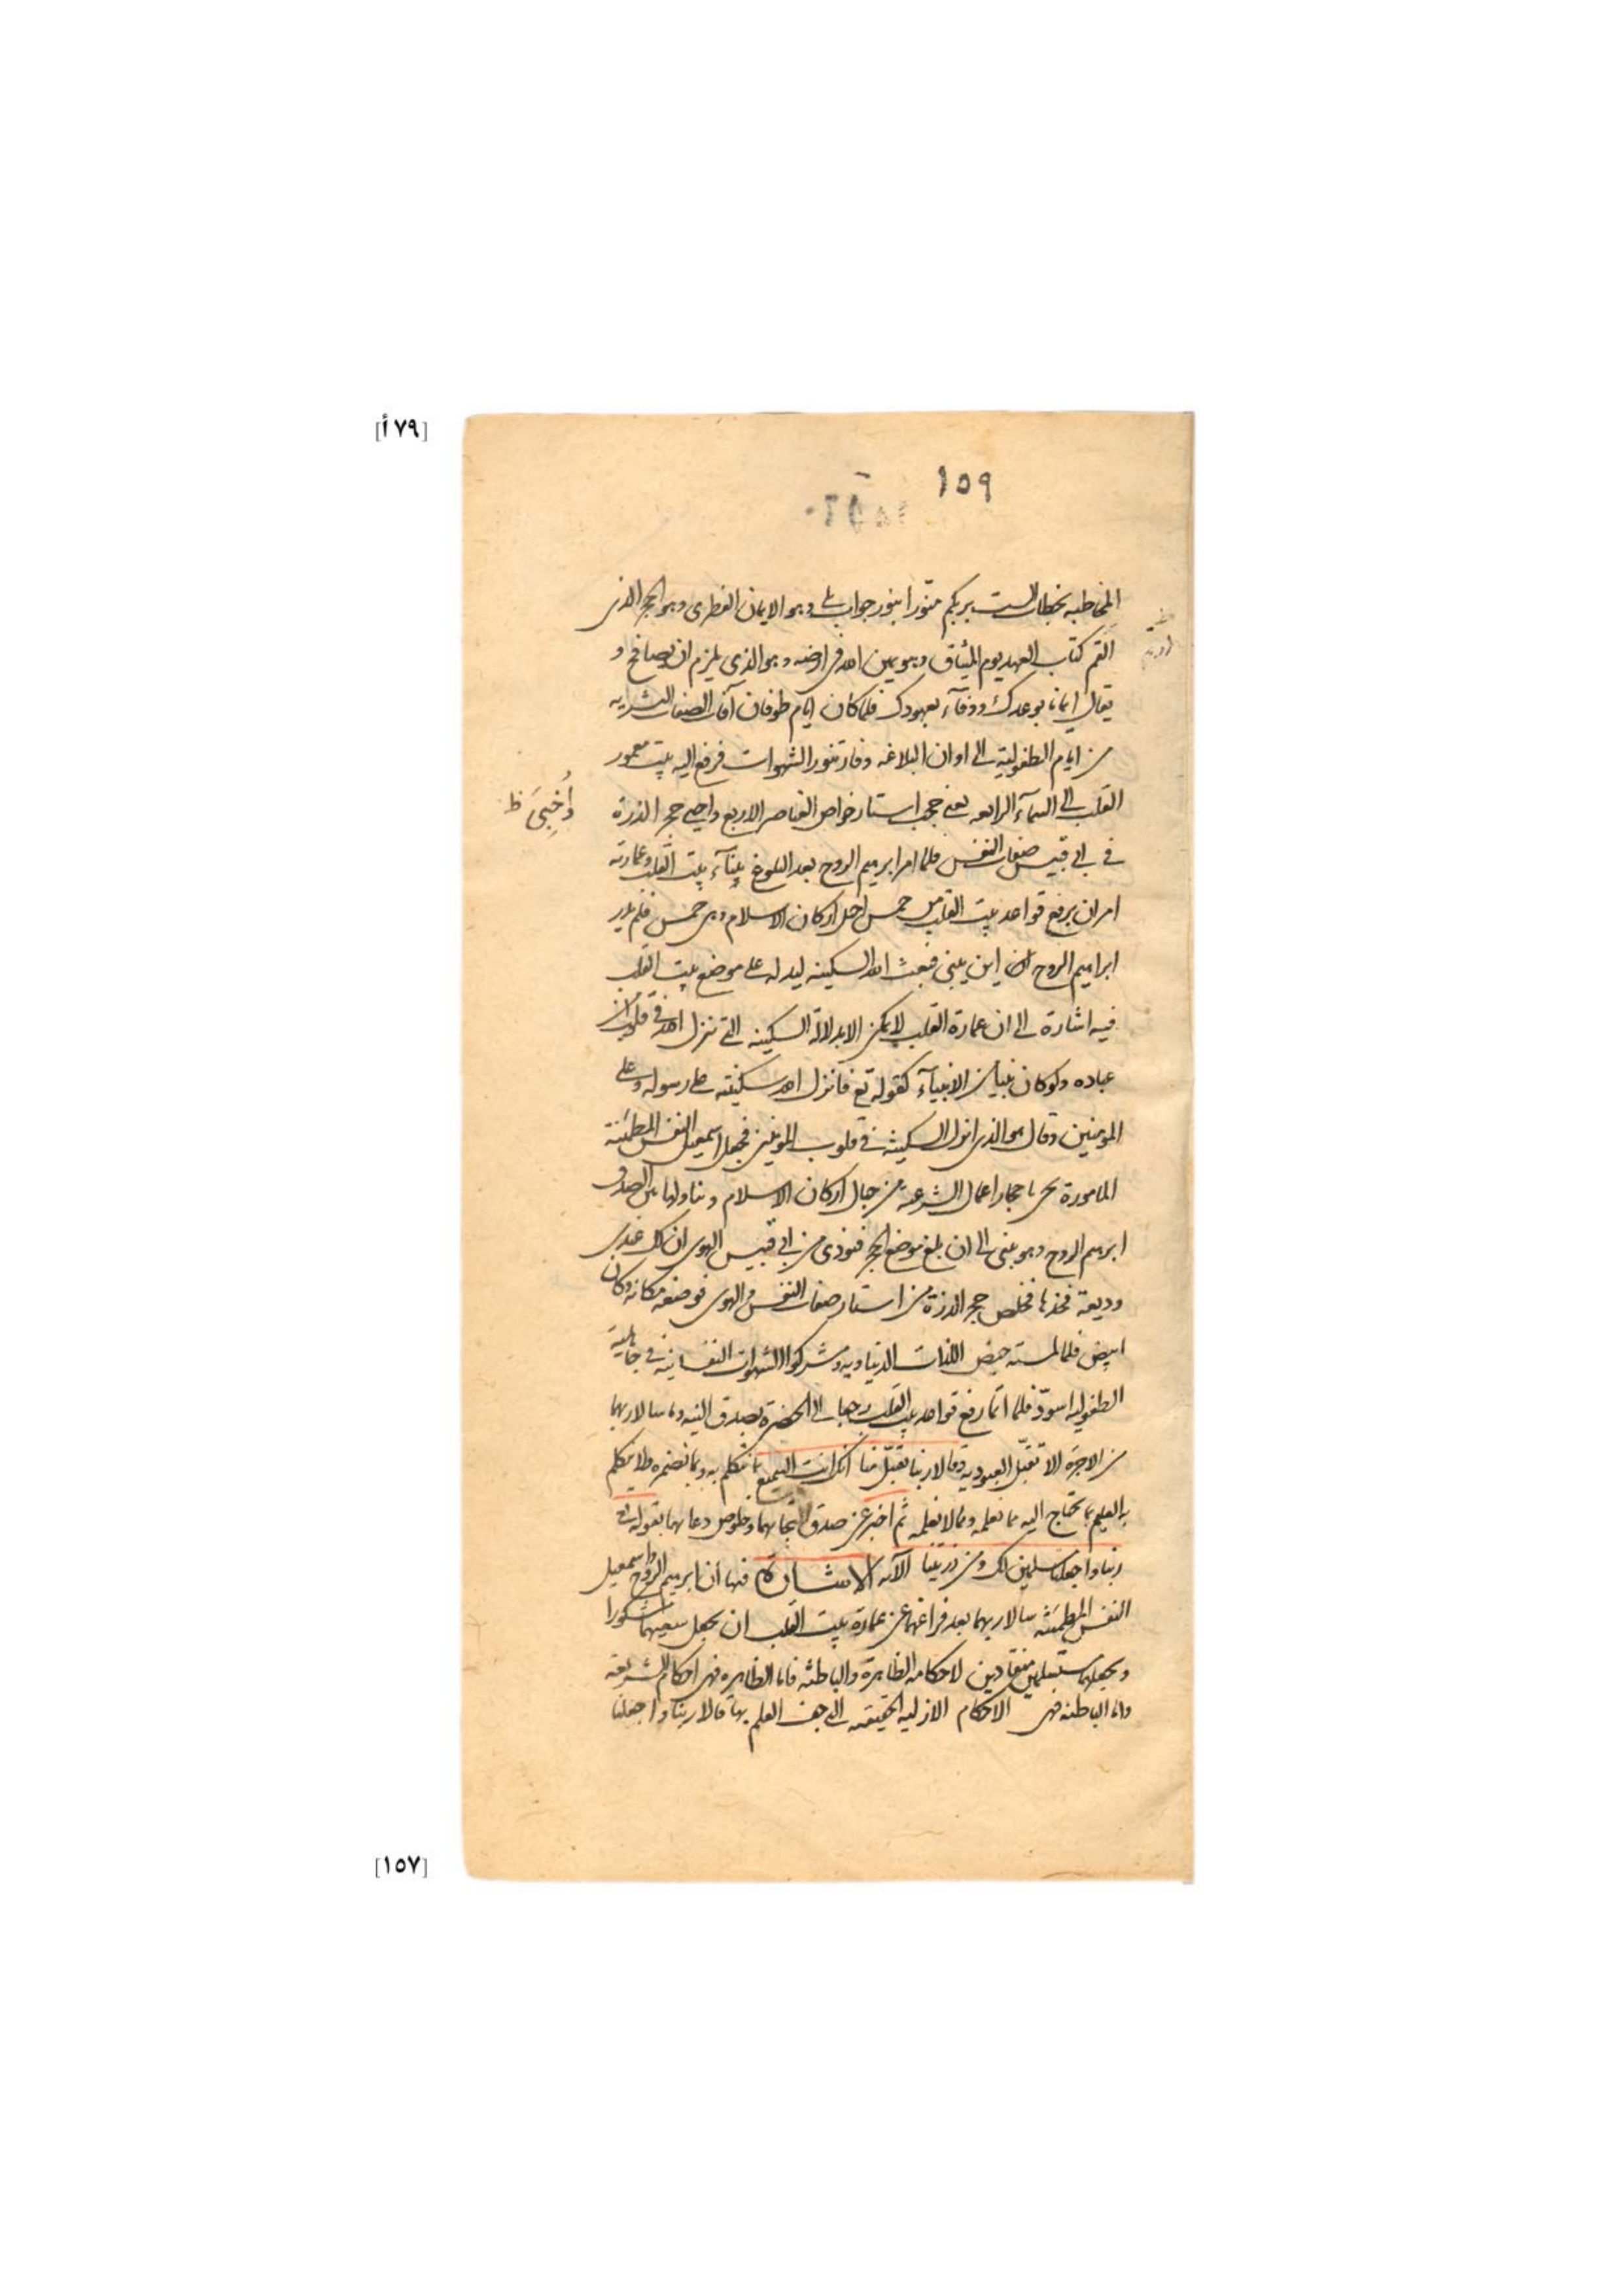 [٧٩أ]
١٥٩
المخاطبه بخطاب الست بربكم منوّرا بنور جواب بلى وهو الايمان الفطرى وهو الحجر الذى
القم كتاب العهد يوم الميثاق وهو يمين الله فى ارضه وهو الذى يلزم ان يصافح و
يقال ايمانا بوعدك ووفآء بعهودك فلما كان ايام طوفان آفات الصفات البشريه
من ايام الطفولية الى اوان البلاغه وفار تنور الشهوات فرفع اليه بيت معمور
القلب الى السمآء الرابعه يعنى حجب استار خواص العناصر الاربع واخبى حجر الذرة
واُخبِىَ ظ
فى ابى قبيس صفات النفس فلما امر ابرهيم الروح بعد البلوغ ببنآء بيت القلب وعمارته
امر ان يرفع قواعد بيت القلب من خمس اجبل اركان الاسلام وهى خمس فلم يدر
ابراهيم الروح اين يبنى فبعث الله السكينه ليدله على موضع بيت القلب
فيه اشارة الى ان عمارة القلب لا يمكن الا بدلالة السكينه التى تنزل الله فى قلوب من
عباده ولو كان نبيا من الانبيآء كقوله تع فانزل الله سكينته على رسوله وعلى
المؤمنين وقال هو الذى انزل السكينة فى قلوب المؤمنين فجعل اسمعيل النفس المطمئنة
المامورة باحجار اعمال الشرعية من جبال اركان الاسلام ويناولها الصدق
ابرهيم الروح وهو يبنى الى ان بلغ موضع الحجر فنودى من ابى قبيس الهوى ان لك عندى
وديعة فخذها فخلص حجر الذرة من استار صفات النفس والهوى فوضعه مكانه وكان
ابيض فلما لمسته حيض اللذات الدنياويه ومشركوا الشهوات النفسانيه فى جاهلية
الطفوليه اسودّ فلما اتما رفع قواعد بيت القلب رجعا الى الحضرة بصدق النيه وما سالا ربهما
من الاجرة الا تقبّل العبوديه وقالا ربنا تقبّل منا انك انت السميع بما نتكلم به وبما نضمره ولا نتكلم
به العليم بما نحتاج اليه مما نعلمه ومما لا نعلمه ثم اخبر عن صدق التجائهما وخلوص دعائهما بقوله تع
ربنا واجعلنا مسلمين لك ومن ذريتنا الآيه الاشارة فيها ان ابرهيم الروح واسمعيل
النفس المطمئنه سالا ربهما بعد فراغهما عن عمارة بيت القلب ان يجعل سعيهما مشكورا
ويجعلهما مستسلمين منقادين لاحكامه الظاهرة والباطنه فاما الظاهره فهى احكام الشريعة
واما الباطنه فهى الاحكام الازليه الحقيقيه التى جف العلم بها قالا ربنا واجعلنا
[١٥٧]